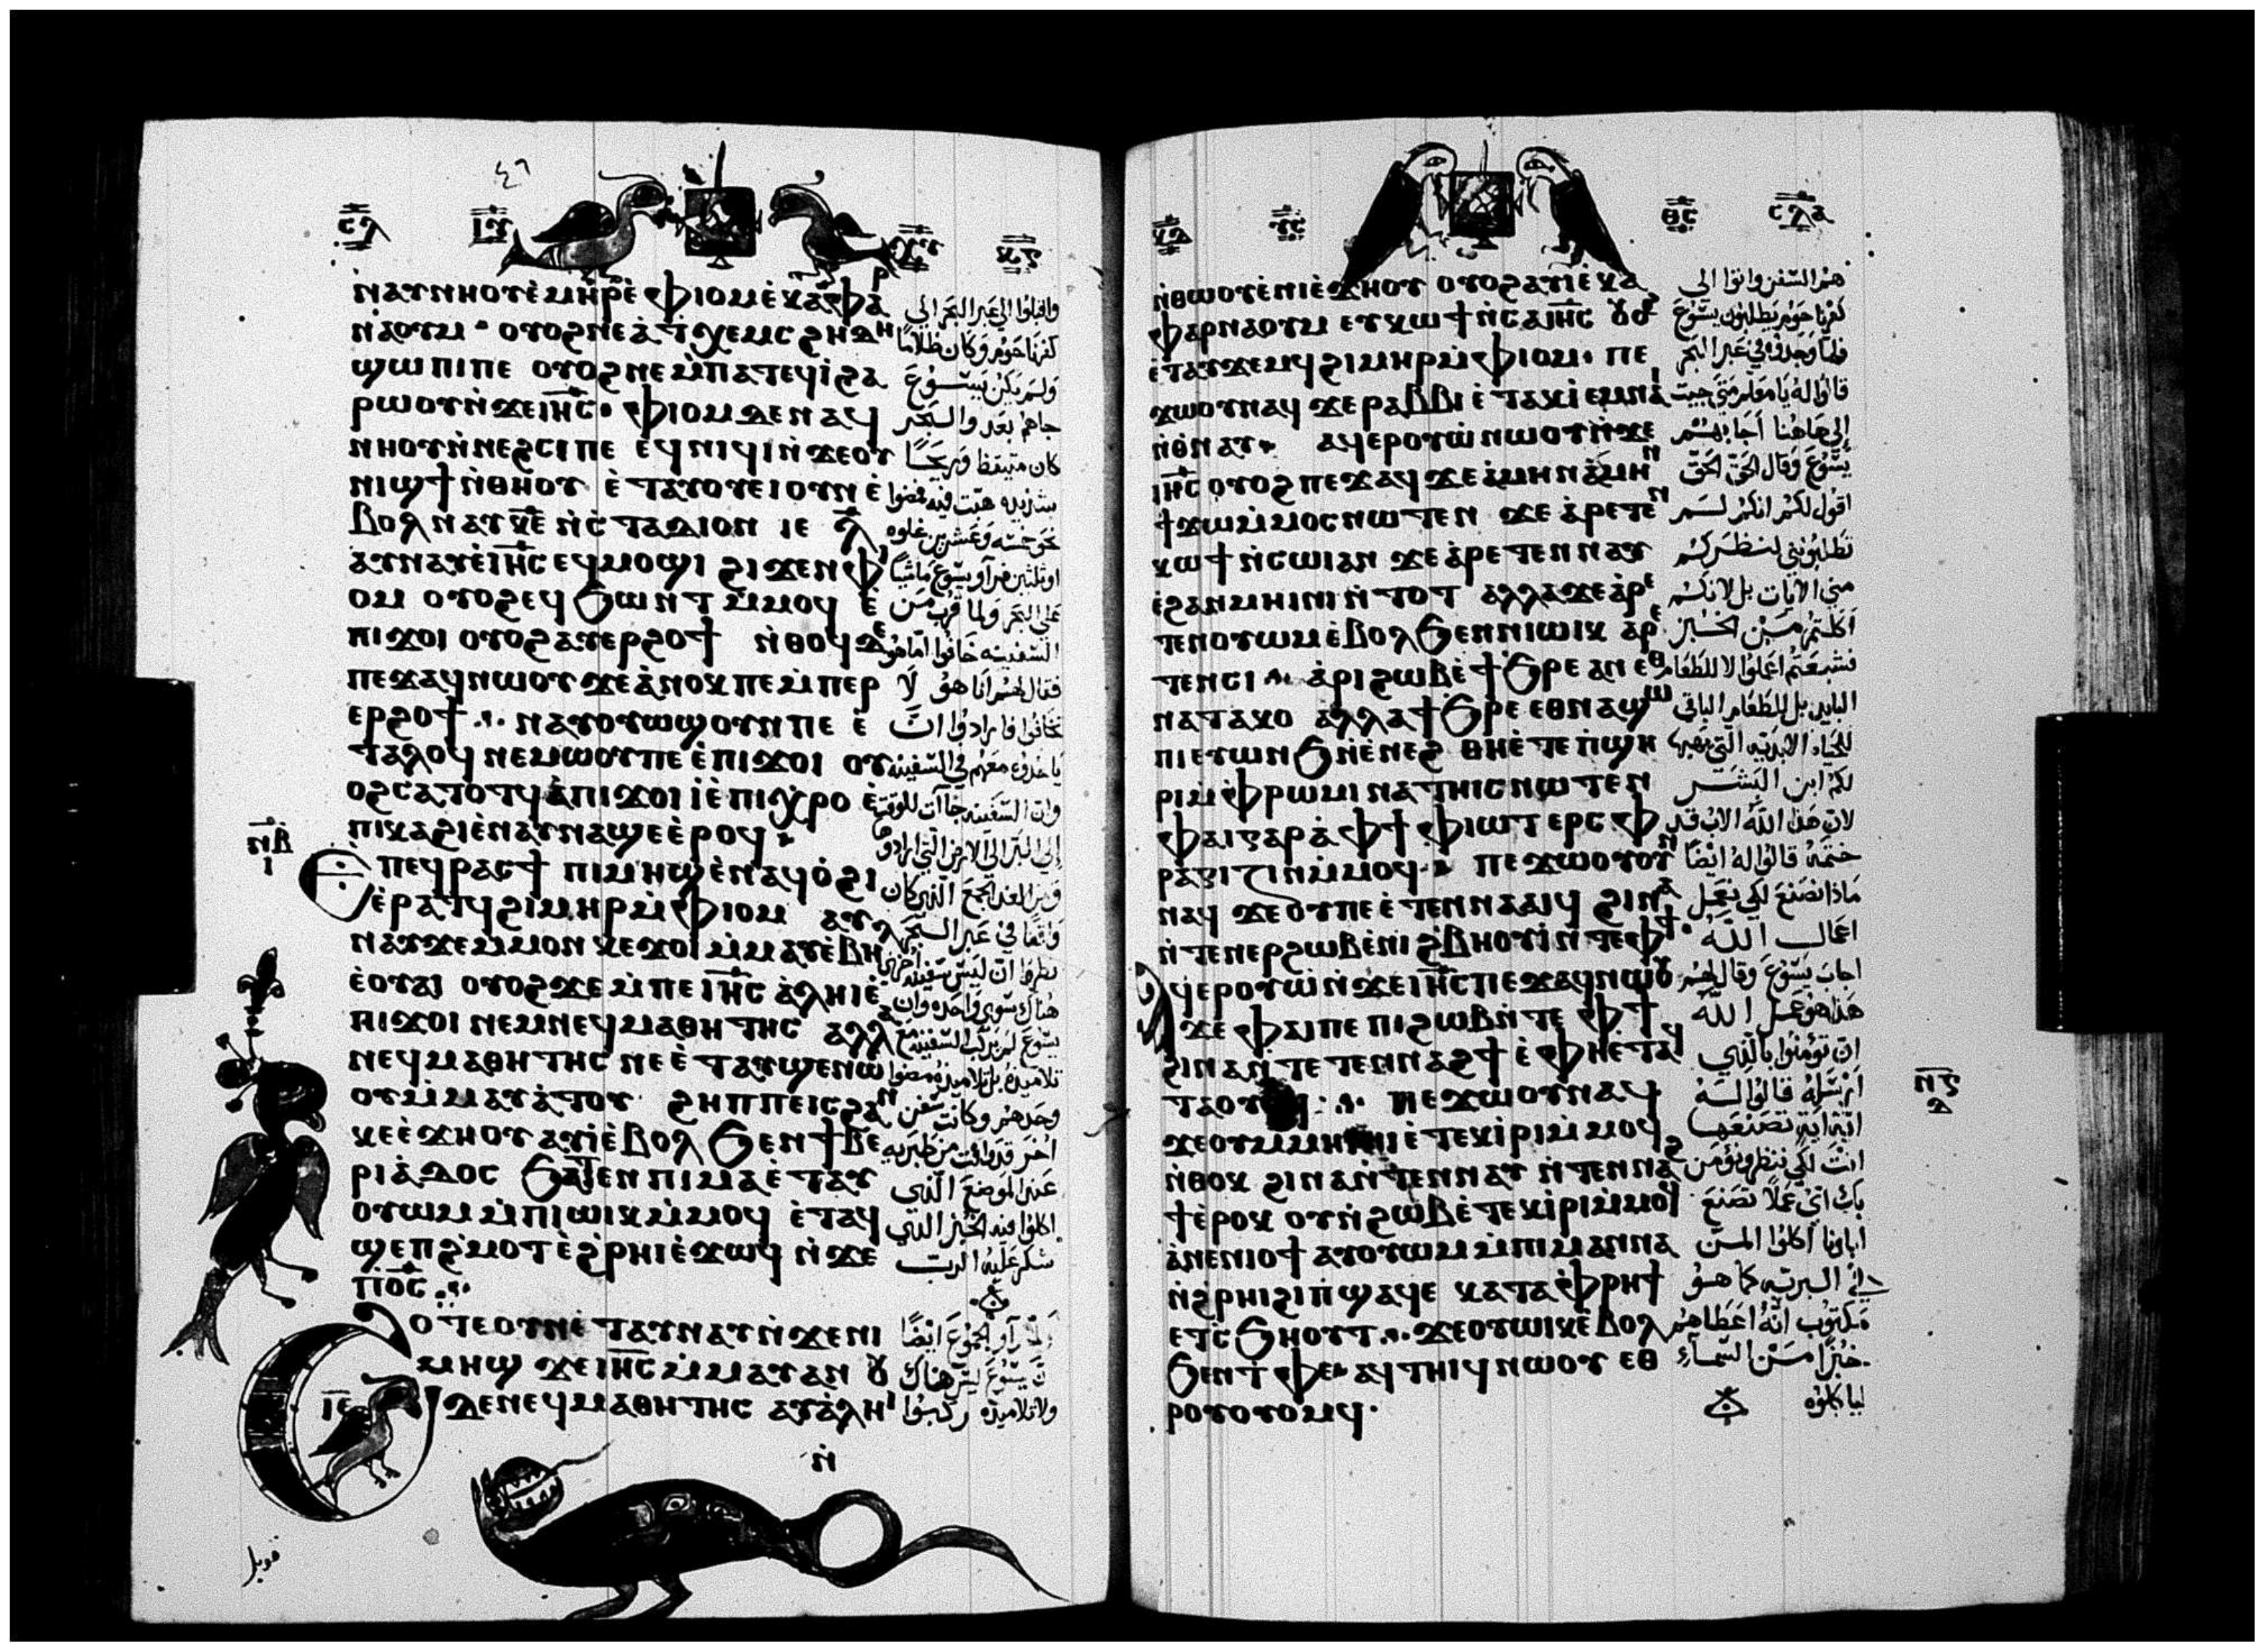 ⲥⲗ
ⲓⲏⲥ
ⲭⲣⲥ
ⲛⲁⲩⲛⲏⲟⲩⲉ̀ⲙⲏⲣⲉ̀ ⲫⲓⲟⲙⲉ̀ ⲕⲁⲫⲁⲣ
ⲛⲁⲟⲩⲙ ⲟⲩⲟϩⲛⲉⲁ̀ ⲧⲭⲉⲙⲥ ϩⲏⲇⲏ
ϣⲱⲡⲓⲡⲉ ⲟⲩⲟϩⲛⲉⲙ̀ⲡⲁⲧⲉϥⲓ̀ ϩⲁ
ⲣⲱⲟⲩⲛ̀ϫⲉⲓⲏⲥ ⲫⲓⲟⲙ ⲇⲉ ⲛⲁϥ
ⲛⲏⲟⲩⲛ̀ⲛⲉϩⲥⲓ ⲡⲉ ⲉϥⲛⲓϥⲓⲛ̀ϫⲉⲟⲩ
ⲛⲓϣϯ ⲛ̀ⲑⲏⲟⲩ ⲉ̀ⲧⲁⲩⲟⲩⲉⲓⲟⲩⲛ ⲉ̀
ⲃⲟⲗ ⲛⲁⲩ ⲕⲉ ⲛ̀ⲥ̀ⲧⲁⲇⲓⲟⲛ ⲓⲉ ⲗ
ⲁⲩⲛⲁⲩⲉ̀ⲓⲏⲥ ⲉϥⲙⲟϣⲓ ϩⲓϫⲉⲛ ⲫⲓ
ⲟⲙ ⲟⲩⲟϩⲉϥϧⲱⲛⲧ ⲙ̀ⲙⲟϥ ⲉ̀
ⲡⲓϫⲟⲓ ⲟⲩⲟϩⲁⲩⲉⲣϩⲟϯ ⲛ̀ⲑⲟϥ ⲇⲉ
ⲡⲉϫⲁϥⲛⲱⲟⲩ ϫⲉⲁ̀ⲛⲟⲕ ⲡⲉ ⲙ̀ⲡⲉⲣ
ⲉⲣϩⲟϯ ⲛⲁⲩⲟⲩⲱϣⲟⲩⲛ ⲡⲉ ⲉ̀
ⲧⲁⲗⲟϥ ⲛⲉⲙⲱⲟⲩ ⲡⲉ ⲉ̀ⲡⲓϫⲟⲓ ⲟⲩ
ⲟϩⲥⲁⲧⲟⲧϥ ⲁ̀ⲡⲓϫⲟⲓ ⲓ̀ⲉ̀ⲡⲓⲭⲣⲟ ⲉ̀
ⲡⲓⲕⲁϩⲓⲉ̀ⲛⲁⲩⲛⲁϣⲉ ⲉ̀ⲣⲟϥ
ⲛⲃ
ⲓ
ⲉ̀ⲡⲉϥⲣⲁⲥϯ ⲡⲓⲙⲏϣⲉ̀ⲛⲁϥⲟ̀ϩⲓ
ⲉ̀ⲣⲁⲧϥ ϩⲓⲙⲏⲣ ⲙ̀ⲫⲓⲟⲙ ⲁⲩ
ⲛⲁⲩϫⲉⲙ̀ⲙⲟⲛ ⲕⲉϫⲟⲓ ⲙ̀ⲙⲁⲩⲉ̀ⲃⲏⲗ
ⲉ̀ⲟⲩⲁⲓ ⲟⲩⲟϩϫⲉⲙ̀ⲡⲉ ⲓⲏⲥ ⲁ̀ⲗⲏⲓ ⲉ̀
ⲡⲓϫⲟⲓ ⲛⲉⲙⲛⲉϥⲙⲁⲑⲏⲧⲏⲥ ⲁⲗⲗⲁ
ⲛⲉϥⲙⲁⲑⲏⲧⲏⲥ ⲛⲉ ⲉ̀ⲧⲁⲩϣⲉⲛⲱ
ⲟⲩⲙ̀ⲙⲁⲩⲁ̀ⲧⲟⲩ ϩⲏⲡⲡⲉⲓⲥ ϩⲁⲛ
ⲕⲉⲉ̀ϫⲏⲟⲩ ⲁⲩⲓ̀ⲉ̀ⲃⲟⲗ ϧⲉⲛ ϯⲃⲉ
ⲣⲓⲁ̀ⲇⲟⲥ ϧⲁⲧⲉⲛ ⲡⲓⲙⲁⲉ̀ⲧⲁⲩ
ⲟⲩⲱⲙ ⲙ̀ⲡⲓⲱⲓⲕ ⲙ̀ⲙⲟϥ ⲉ̀ⲧⲁϥ
ϣⲉⲡϩ̀ⲙⲟⲧ ⲉ̀ϩ̀ⲣⲏⲓⲉ̀ϫⲱϥ ⲛ̀ϫⲉ
ⲡⲟ̅ⲥ̅
ϩⲟⲧⲉ ⲟⲩⲛⲉ̀ⲧⲁⲩⲛⲁⲩ ⲛ̀ϫⲉⲛⲓ
ⲙⲏϣ ϫⲉⲓⲏⲥ ⲙ̀ⲙⲁⲩⲁⲛ ⲟⲩ
ⲓⲉ
ⲇⲉⲛⲉϥⲙⲁⲑⲏⲧⲏⲥ ⲁⲩⲁ̀ⲗⲏⲓ
ⲛ̀
واقبلوا الي عبر البحر الي
كفرناحوم وكان ظلاما
ولم يكن يسوع
جاهم بعد والبحر
كان متيقظ وريحا
شديده هبت فيه فمضوا
نحو خمسه وعشرين غلوه
او ثلثين فرآو يسوع ماشيا
علي البحر ولما قرب من
السفينه خافوا اما هو
فقال لهم انا هو لا
تخافوا فارادوا ان
ياخذوه معهم في السفينه
وان السفينه جاآت للوقت
إلي البر الي الارض التي ارادو
ومن الغد الجمع الذي كان
واقفا في عبر البحر
نظروا ان ليس سفينه اخري
هناك سوي واحده وان
يسوع لم يركب السفينه مع
تلاميذه بل تلاميذه مضوا
وحدهم وكانت سفن
اخر قد وافت من طبريه
عند الموضع الذي
اكلوا فيه الخبز الذي
شكر عليه الرب
رآو الجموع ايضا
يسوع ليس هناك
ولا تلاميذه ركبوا
قوبل
ⲩⲥ
ⲑⲥ
ⲥⲗⲁ
ⲛ̀ⲑⲱⲟⲩ ⲉ̀ⲛⲓⲉ̀ϫⲏⲟⲩ ⲟⲩⲟϩⲁⲩⲓ̀ⲉ̀ ⲕⲁ
ⲫⲁⲣⲛⲁⲟⲩⲙ ⲉⲩⲕⲱϯ ⲛ̀ⲥⲁⲓⲏⲥ ⲟⲩⲟϩ
ⲉ̀ⲧⲁⲩϫⲉⲙϥ ϩⲓⲙⲏⲣ ⲙ̀ⲫⲓⲟⲙ ⲡⲉ
ϫⲱⲟⲩⲛⲁϥ ϫⲉ ⲣⲁⲃⲃⲓ ⲉ̀ⲧⲁⲕⲓ̀ ⲉⲙⲛⲁⲓ
ⲛ̀ⲑⲛⲁⲩ ⲁϥⲉⲣⲟⲩⲱ̀ ⲛⲱⲟⲩⲛ̀ϫⲉ
ⲓⲏⲥ ⲟⲩⲟϩ ⲡⲉϫⲁϥ ϫⲉⲁ̀ⲙⲏⲛ ⲁ̀ⲙⲏⲛ
ϯϫⲱⲙ̀ⲙⲟⲥ ⲛⲱⲧⲉⲛ ϫⲉ ⲁ̀ⲣⲉⲧⲉⲛ
ⲕⲱϯ ⲛ̀ⲥⲱⲓⲁⲛ ϫⲉⲁ̀ⲣⲉⲧⲉⲛⲛⲁⲩ
ⲉ̀ϩⲁⲛⲙⲏⲓⲛⲓ ⲛ̀ⲧⲟⲧ ⲁⲗⲗⲁϫⲉⲁ̀ⲣⲉ
ⲧⲉⲛⲟⲩⲱⲙⲉ̀ⲃⲟⲗ ϧⲉⲛ ⲛⲓⲱⲓⲕ ⲁⲣⲉ
ⲧⲉⲛⲥⲓ ⲁ̀ⲣⲓϩⲱⲃⲉ̀ ϯϧⲣⲉ ⲁⲛ ⲉⲑ
ⲛⲁⲧⲁⲕⲟ ⲁⲗⲗⲁϯϧⲣⲉ ⲉⲑⲛⲁϣⲱ
ⲡⲓ ⲉⲩⲱⲛϧ ⲛ̀ⲉⲛⲉϩ ⲑⲏⲉ̀ⲧⲉ ⲡ̀ϣⲏ
ⲣⲓ ⲙ̀ⲫⲣⲱⲙⲓ ⲛⲁⲧⲏⲓⲥ ⲛⲱⲧⲉⲛ
ⲫⲁⲓⲅⲁⲣ ⲁ̀ⲫϯ ⲫⲓⲱⲧ ⲉⲣⲥⲫ
ⲣⲁⲅⲓⲍⲓⲛ ⲙ̀ⲙⲟϥ ⲡⲉϫⲱⲟⲩ ⲟⲩⲛ
ⲛⲁϥ ϫⲉ ⲟⲩⲡⲉ ⲉ̀ⲧⲉⲛⲛⲁⲁⲓϥ ϩⲓⲛⲁ
ⲛ̀ⲧⲉⲛⲉⲣϩⲱⲃⲉ̀ⲛⲓ ϩ̀ⲃⲏⲟⲩⲓ̀ ⲛ̀ⲧⲉ ⲫϯ
ⲁϥⲉⲣⲟⲩⲱ̀ ⲛ̀ϫⲉⲓⲏⲥ ⲡⲉϫⲁϥⲛⲱⲟⲩ
ϫⲉ ⲫⲁⲓⲡⲉ ⲡⲓϩⲱⲃ ⲛ̀ⲧⲉ ⲫϯ
ϩⲓⲛⲁ ⲛ̀ⲧⲉⲧⲉⲛⲛⲁϩϯ ⲉ̀ⲫⲏⲉⲧⲁϥ
ⲧⲁⲟⲩⲟϥ ⲡⲉϫⲱⲟⲩⲛⲁϥ
ϫⲉⲟⲩⲙⲙⲏⲓⲛⲓ ⲉ̀ⲧⲉⲕⲓ̀ⲣⲓ ⲙ̀ⲙⲟϥ
ⲛ̀ⲑⲟⲕ ϩⲓⲛⲁ ⲛ̀ⲧⲉⲛⲛⲁⲩ ⲛ̀ⲧⲉⲛⲛⲁϩ
ϯ ⲉ̀ⲣⲟⲕ ⲟⲩⲛ̀ϩⲱⲃ ⲉ̀ⲧⲉⲕⲓ̀ⲣⲓ ⲙ̀ⲙⲟϥ
ⲁ̀ⲛⲉⲛⲓⲟϯ ⲁⲩⲟⲩⲱⲙ ⲙ̀ⲡⲓⲙⲁⲛⲛⲁ
ⲛ̀ϩⲣⲏⲓ ϩⲓ ⲡ̀ϣⲁϥⲉ ⲕⲁⲧⲁⲫ̀ⲣⲏϯ
ⲉⲧⲥ̀ϧⲏⲟⲩⲧ ϫⲉⲟⲩⲱⲓⲕ ⲉ̀ⲃⲟⲗ
ϧⲉⲛ ⲧ̀ⲫⲉ ⲁϥⲧⲏⲓϥ ⲛⲱⲟⲩ ⲉⲑ
ⲣⲟⲩⲟⲩⲟⲙϥ
هم السفن واتوا الى
كفرناحوم يطلبون يسوع
فلما وجدوه في عبر البحر
قالوا له يا معلم متي جيت
إلي هاهنا اجابهم
يسوع وقال الحق الحق
اقول لكم انكم لستم
تطلبوني لنظركم
مني الآيات بل لانكم
اكلتم من الخبز
فشبعتم اعملوا لا للطعام
البايد بل للطعام الباقي
للحياه الابديه التي يعطيها
لكم ابن البشر
لان هذا الله الاب قد
ختمه قالوا له ايضا
ماذا نصنع لكي نعمل
اعمال الله
اجاب يسوع وقال لهم
هذا هو عمل الله
ان تؤمنوا بالذي
ارسله قالوا له
اية اية تصنعها
انت لكي ننظر ونؤمن
بك اي عملا تصنع
اباونا اكلوا المن
في البريه كما هو
مكتوب انه اعطاهم
خبزا من السماء
لياكلوه
ⲛⲅ
ⲇ